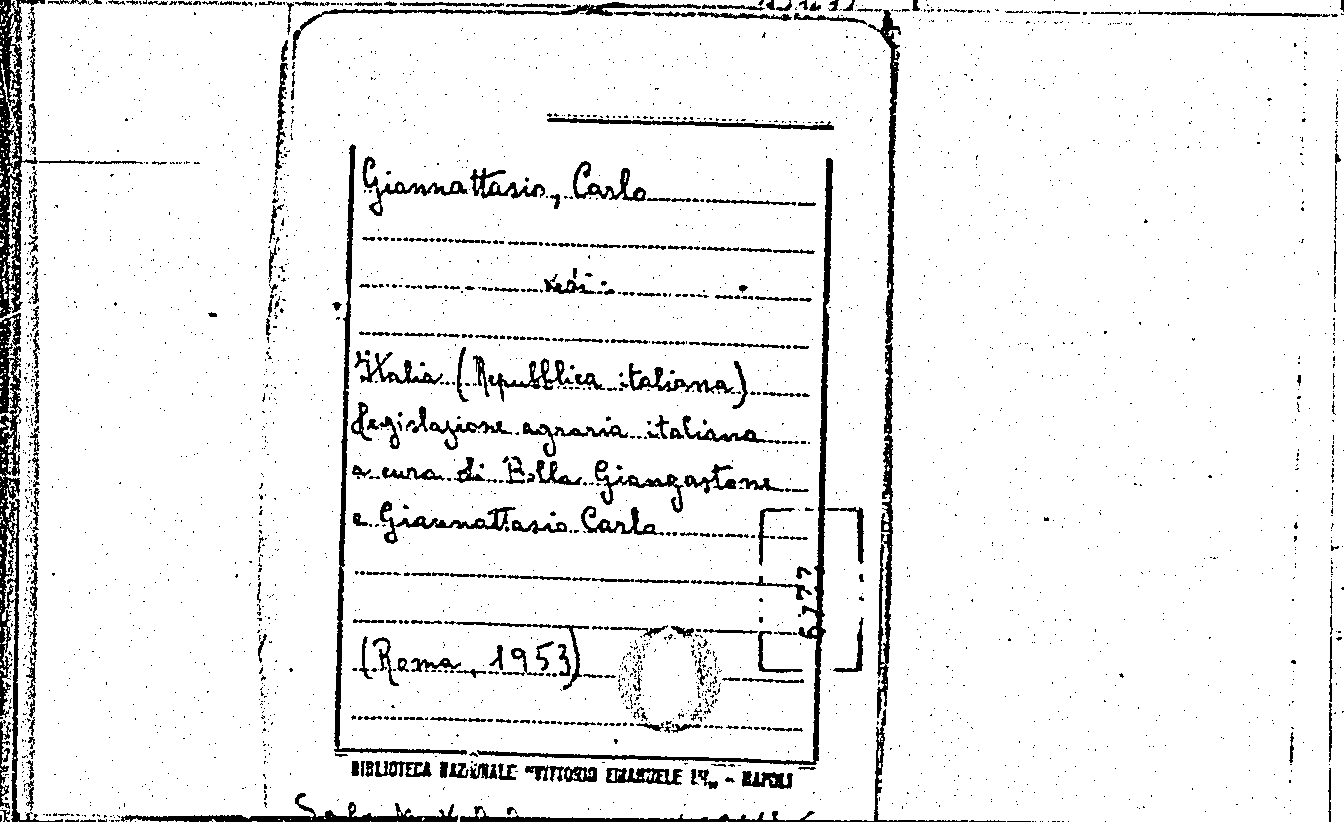 Giannattasio, Carlo
vedi:
Italia (Repubblica italiana)
Legislazione agraria italiana
a cura di Bolla Giangastone
e Giannattasio Carlo
6777
(Roma, 1953)
BIBLIOTECA NAZIONALE "VITTORIO EMANUELE III„ - NAPOLI